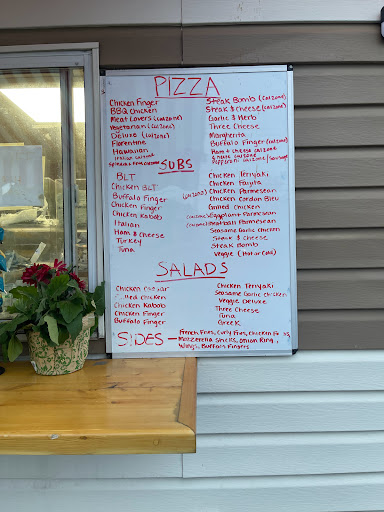 PIZZA
Chicken Finger
BBQ Chicken
Meat Lovers (calzone)
Vegetarian (calzone)
Deluxe (calzone)
Florentine
Hawaiian
Italian calzone
Steak Bomb (calzone)
Steak & Cheese (calzone)
Garlic & Herb
Three Cheese
Margherita
Buffalo Finger (calzone)
Ham & cheese calzone
Pepperoni calzone / Sausage
SUBS
BLT
Chicken BLT
Buffalo Finger
Chicken Finger
Chicken Kabob
Italian
Ham & Cheese
Turkey
Tuna
Chicken Teriyaki
Chicken Fajita
(calzone) Chicken Parmesean
Chicken Cordon Bleu
Grilled Chicken
(calzone) Eggplant Parmesean
(calzone) Meatball Parmesean
Seasame Garlic Chicken
Steak & Cheese
Steak Bomb
Veggie (Hot or Cold)
SALADS
Chicken Caesar
Chicken
Chicken Kabob
Chicken Finger
Buffalo Finger
Chicken Teriyaki
Seasame Garlic Chicken
Veggie Deluxe
Three Cheese
Tuna
Greek
SIDES — French Fries, Curly Fries, Chicken
Mozzerella Sticks, Onion Ring,
Wings, Buffalo Fingers